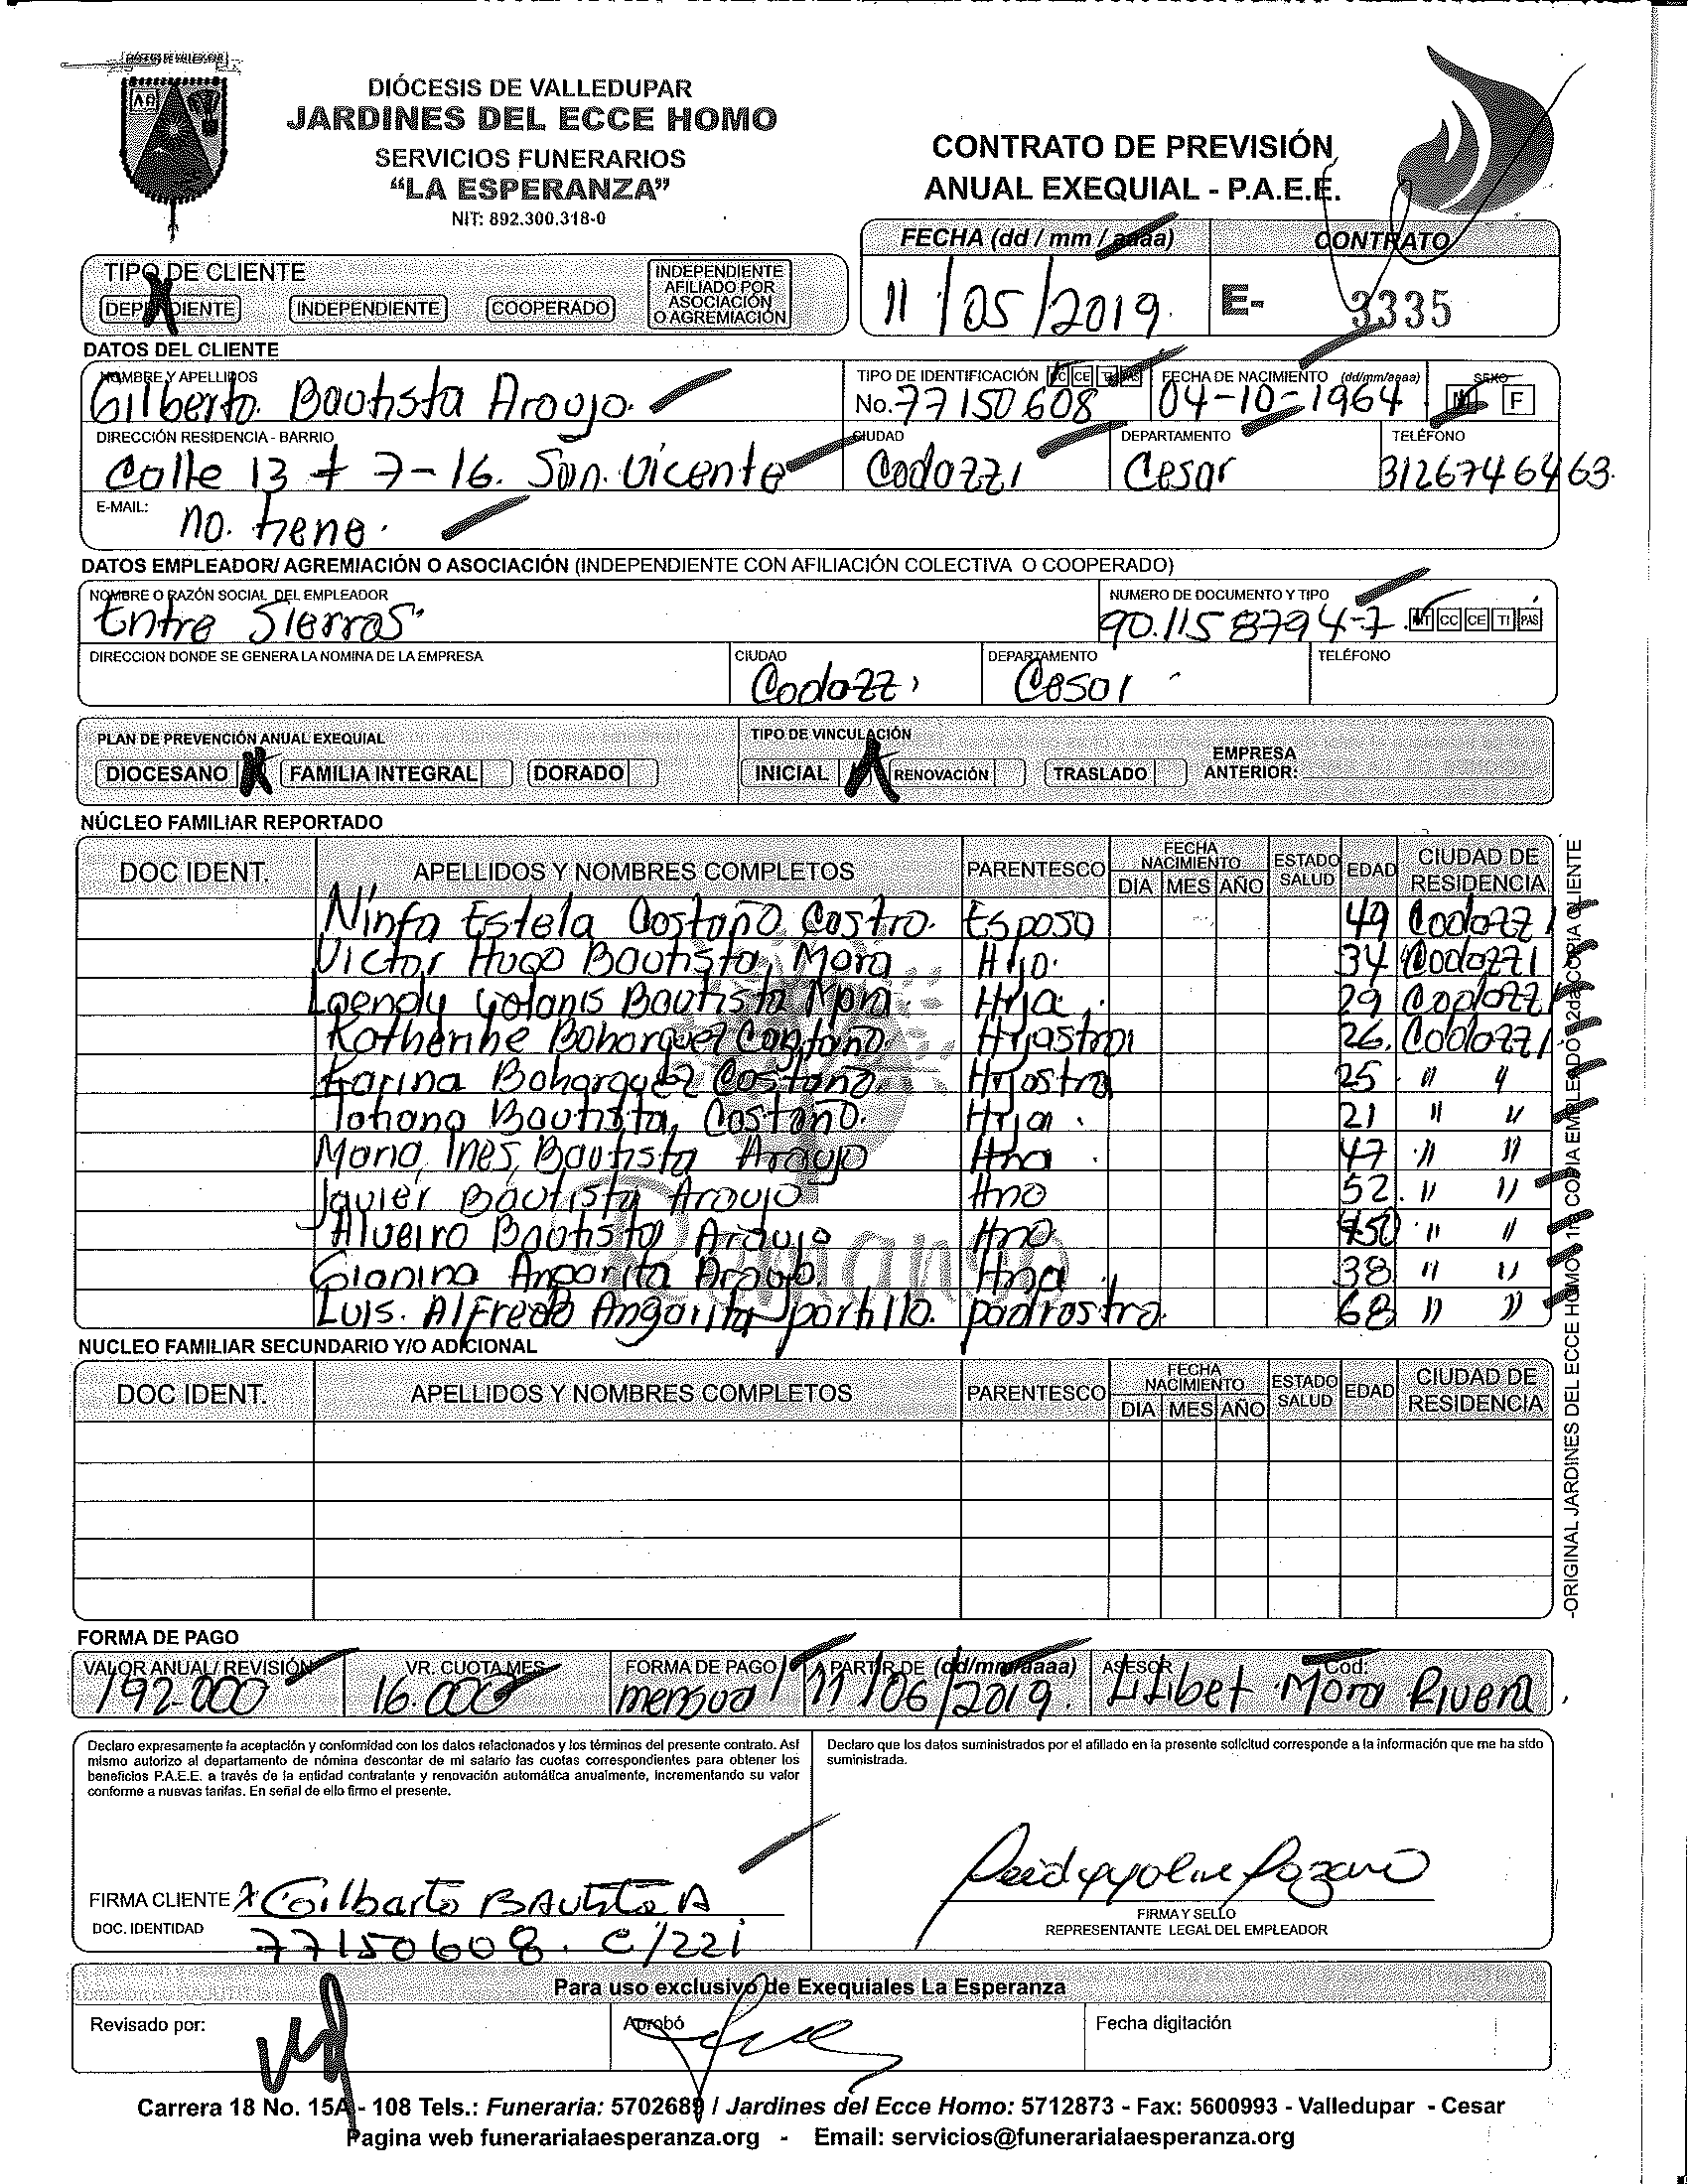 DIÓCESIS DE VALLEDUPAR
JARDINES DEL ECCE HOMO
SERVICIOS FUNERARIOS
“LA ESPERANZA”
NIT: 892.300.318-0
CONTRATO DE PREVISIÓN
ANUAL EXEQUIAL - P.A.E.E.
FECHA (dd / mm / aaaa) CONTRATO
11 / 05 / 2019. E- 3335
TIPO DE CLIENTE
DEPENDIENTE INDEPENDIENTE COOPERADO INDEPENDIENTE AFILIADO POR ASOCIACIÓN O AGREMIACIÓN
DATOS DEL CLIENTE
NOMBRE Y APELLIDOS TIPO DE IDENTIFICACIÓN CC CE TI PAS FECHA DE NACIMIENTO (dd/mm/aaaa) SEXO
Gilberto. Bautista Araujo. No. 77150608 04-10-1964 M F
DIRECCIÓN RESIDENCIA - BARRIO CIUDAD DEPARTAMENTO TELÉFONO
Calle 13 # 7-16. San. Vicente Codazzi Cesar 3126746463.
E-MAIL: no. tiene.
DATOS EMPLEADOR/ AGREMIACIÓN O ASOCIACIÓN (INDEPENDIENTE CON AFILIACIÓN COLECTIVA O COOPERADO)
NOMBRE O RAZÓN SOCIAL DEL EMPLEADOR NUMERO DE DOCUMENTO Y TIPO
Entre Sierras 90.1158794-7. NIT CC CE TI PAS
DIRECCION DONDE SE GENERA LA NOMINA DE LA EMPRESA CIUDAD DEPARTAMENTO TELÉFONO
Codazzi Cesar
PLAN DE PREVENCIÓN ANUAL EXEQUIAL TIPO DE VINCULACIÓN
DIOCESANO FAMILIA INTEGRAL DORADO INICIAL RENOVACIÓN TRASLADO EMPRESA ANTERIOR:
NÚCLEO FAMILIAR REPORTADO
DOC IDENT. APELLIDOS Y NOMBRES COMPLETOS PARENTESCO FECHA NACIMIENTO DIA MES AÑO ESTADO SALUD EDAD CIUDAD DE RESIDENCIA
Ninfa Estela Castaño Castro. Esposa 49 Codazzi
Victor Hugo Bautista, Mora Hijo. 34 Codazzi
Leendy Yolanis Bautista Mora. Hija. 29 Codazzi
Katherine Bohorquez Castaño. Hijastra 26. Codazzi
Karina Bohorquez Castaño. Hijastra 25 " "
Tatiana Bautista, Castaño. Hija. 21 " "
Maria, Ines, Bautista Araujo Hna. 47 " "
Javier Bautista Araujo Hno 52. " "
Alveiro Bautista Araujo Hno 50 " "
Gianina Angarita Araujo. Hna. 38 " "
Luis. Alfredo Angarita portillo. padrastro. 68 " "
NUCLEO FAMILIAR SECUNDARIO Y/O ADICIONAL
DOC IDENT. APELLIDOS Y NOMBRES COMPLETOS PARENTESCO FECHA NACIMIENTO DIA MES AÑO ESTADO SALUD EDAD CIUDAD DE RESIDENCIA
-ORIGINAL JARDINES DEL ECCE HOMO 1ra COPIA EMPLEADO 2da COPIA CLIENTE
FORMA DE PAGO
VALOR ANUAL/ REVISIÓN VR. CUOTA MES FORMA DE PAGO A PARTIR DE (dd/mm/aaaa) ASESOR Cod:
192.000 16.000 mensual 11/06/2019. Lilibet Mora Rivera
Declaro expresamente la aceptación y conformidad con los datos relacionados y los términos del presente contrato. Así
mismo autorizo al departamento de nómina descontar de mi salario las cuotas correspondientes para obtener los
beneficios P.A.E.E. a través de la entidad contratante y renovación automática anualmente, incrementando su valor
conforme a nuevas tarifas. En señal de ello firmo el presente.
Declaro que los datos suministrados por el afiliado en la presente solicitud corresponde a la información que me ha sido
suministrada.
FIRMA CLIENTE X Gilberto BAutista A
DOC. IDENTIDAD 77150608. C/zzi
FIRMA Y SELLO
REPRESENTANTE LEGAL DEL EMPLEADOR
Para uso exclusivo de Exequiales La Esperanza
Revisado por: Aprobó Fecha digitación
Carrera 18 No. 15A - 108 Tels.: Funeraria: 5702689 / Jardines del Ecce Homo: 5712873 - Fax: 5600993 - Valledupar - Cesar
Pagina web funerarialaesperanza.org - Email: servicios@funerarialaesperanza.org